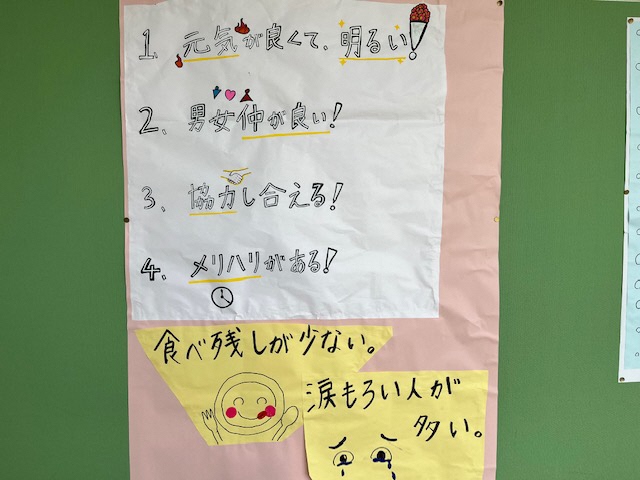 1、元気が良くて、明るい!
2、男女仲が良い!
3、協力し合える!
4、メリハリがある!
食べ残しが少ない。
涙もろい人が
多い。